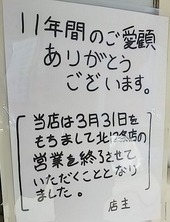 11年間のご愛顧
ありがとう
ございます。
当店は3月31日を
もちまして北店の
営業を終了させて
いただくこととなり
ました。
店主